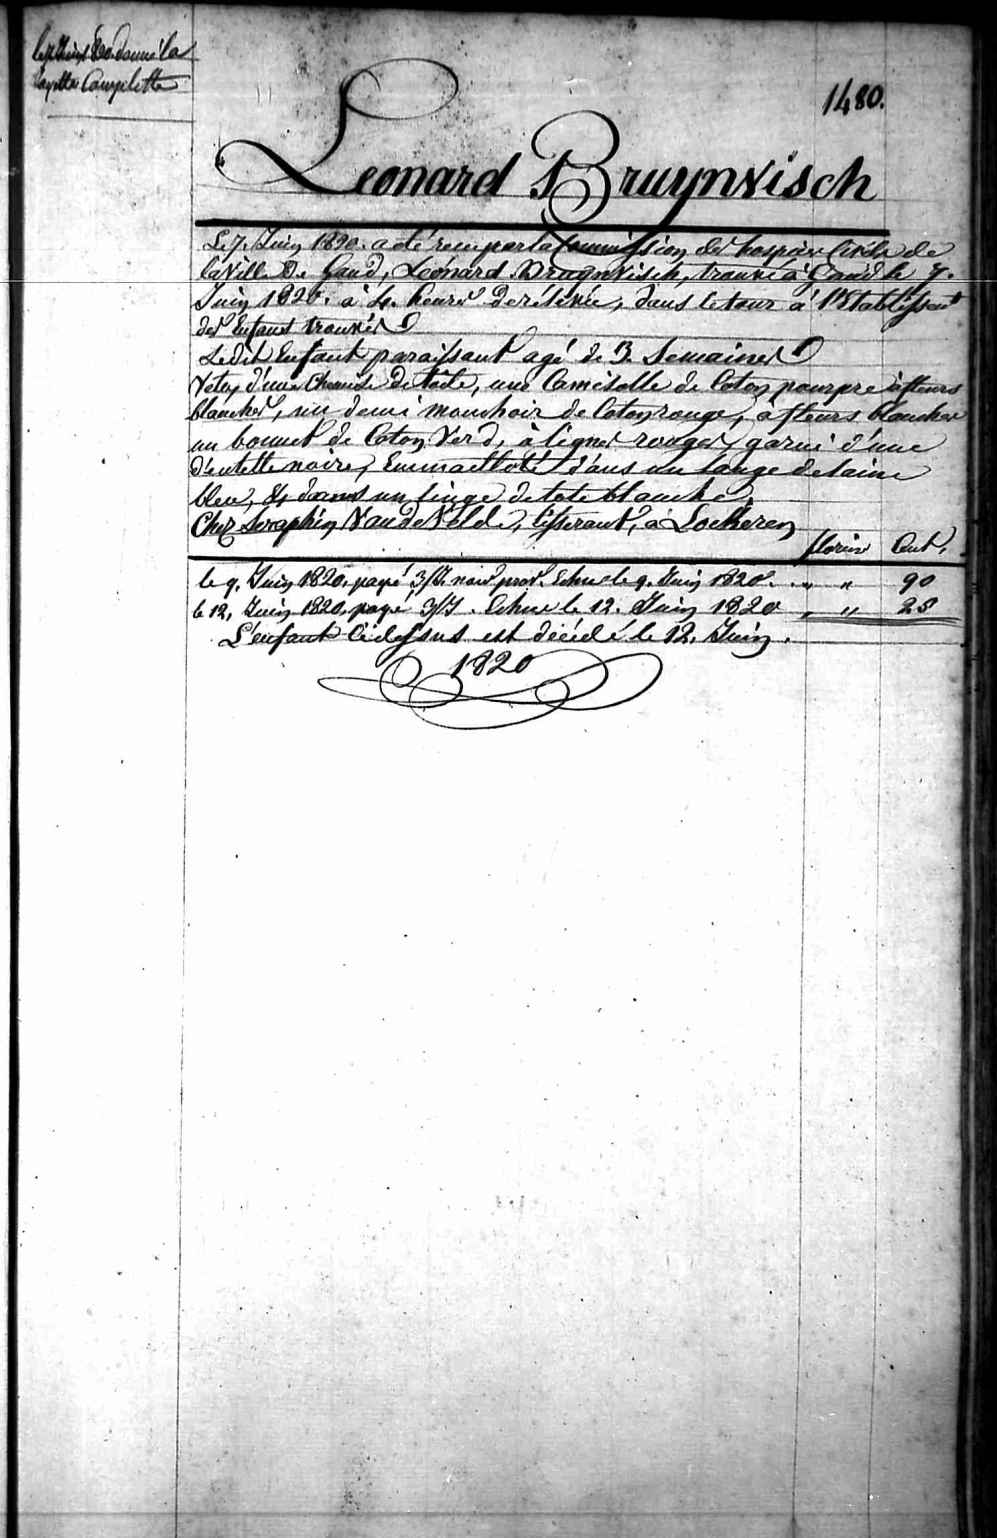 le 7 Juin 820 donné la
layette Complette
1480.
Leonard Bruynvisch
Le 7. Juin 1820. a été reçu par la Commission des hospices Civils de
la Ville De Gand, Léonard Bruynvisch, trouvé à Gand le 7.
Juin 1820. à 4. heures de rélévée, dans le tour à l'Etablissent
des Enfants trouvés
Ledit Enfant paraissant agé de 3. Semaines
Vetu, d'une Chemise De toile, une Camisolle de Coton pourpre à fleurs
blanches, un demi mouchoir de Coton rouge, à fleurs blanches
un bonnet de Coton Verd, à lignes rouges, garni d'une
dentelle noire, Emmailloté dans un lange de laine
bleu, & dans un linge de toile blanche.
Chez Seraphin Van de Velde, tisserand, à Lockeren
florins Cent.
le 9. Juin 1820. payé 3/J. nois prov. Echue le 9. Juin 1820. . " " 90
le 12, Juin 1820. payé 3/J. Echue le 12. Juin 1820 " " 28
L'enfant Cidessus est décédé le 12. Juin.
1820